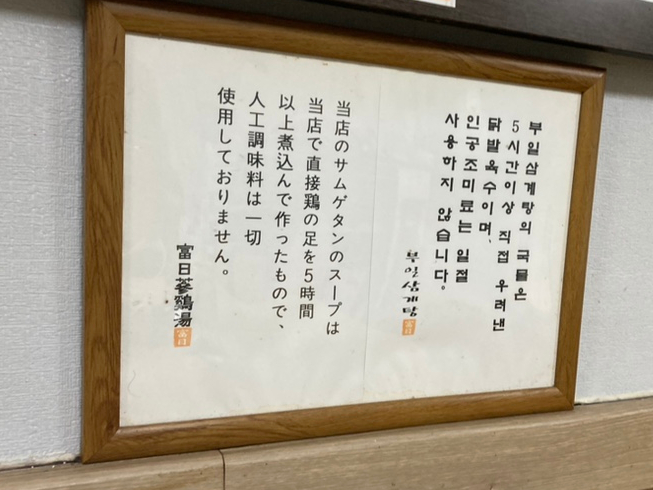 부일삼계탕의 국물은
5시간이상 직접 우려낸
닭발육수이며,
인공조미료는 일절
사용하지 않습니다.
부일삼계탕
富日
当店のサムゲタンのスープは
当店で直接鶏の足を5時間
以上煮込んで作ったもので、
人工調味料は一切
使用しておりません。
富日蔘鷄湯
富日